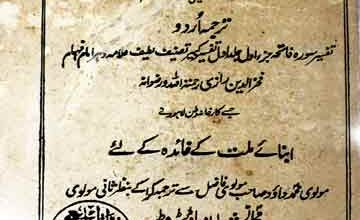 ترجمہ اردو
تفسیر سورہ فاتحہ جزو اول جلد اول تفسیر کبیر تصنیف لطیف علامہ دہر امام فہام
فخر الدین رازی رحمۃ اللہ ورضوانہ
جسے کارخانہ
ابنائے ملت کے فائدہ کے لئے
مولوی محمد داؤد صاحب مولوی فاضل سے ترجمہ کرا کے بنظر ثانی مولوی